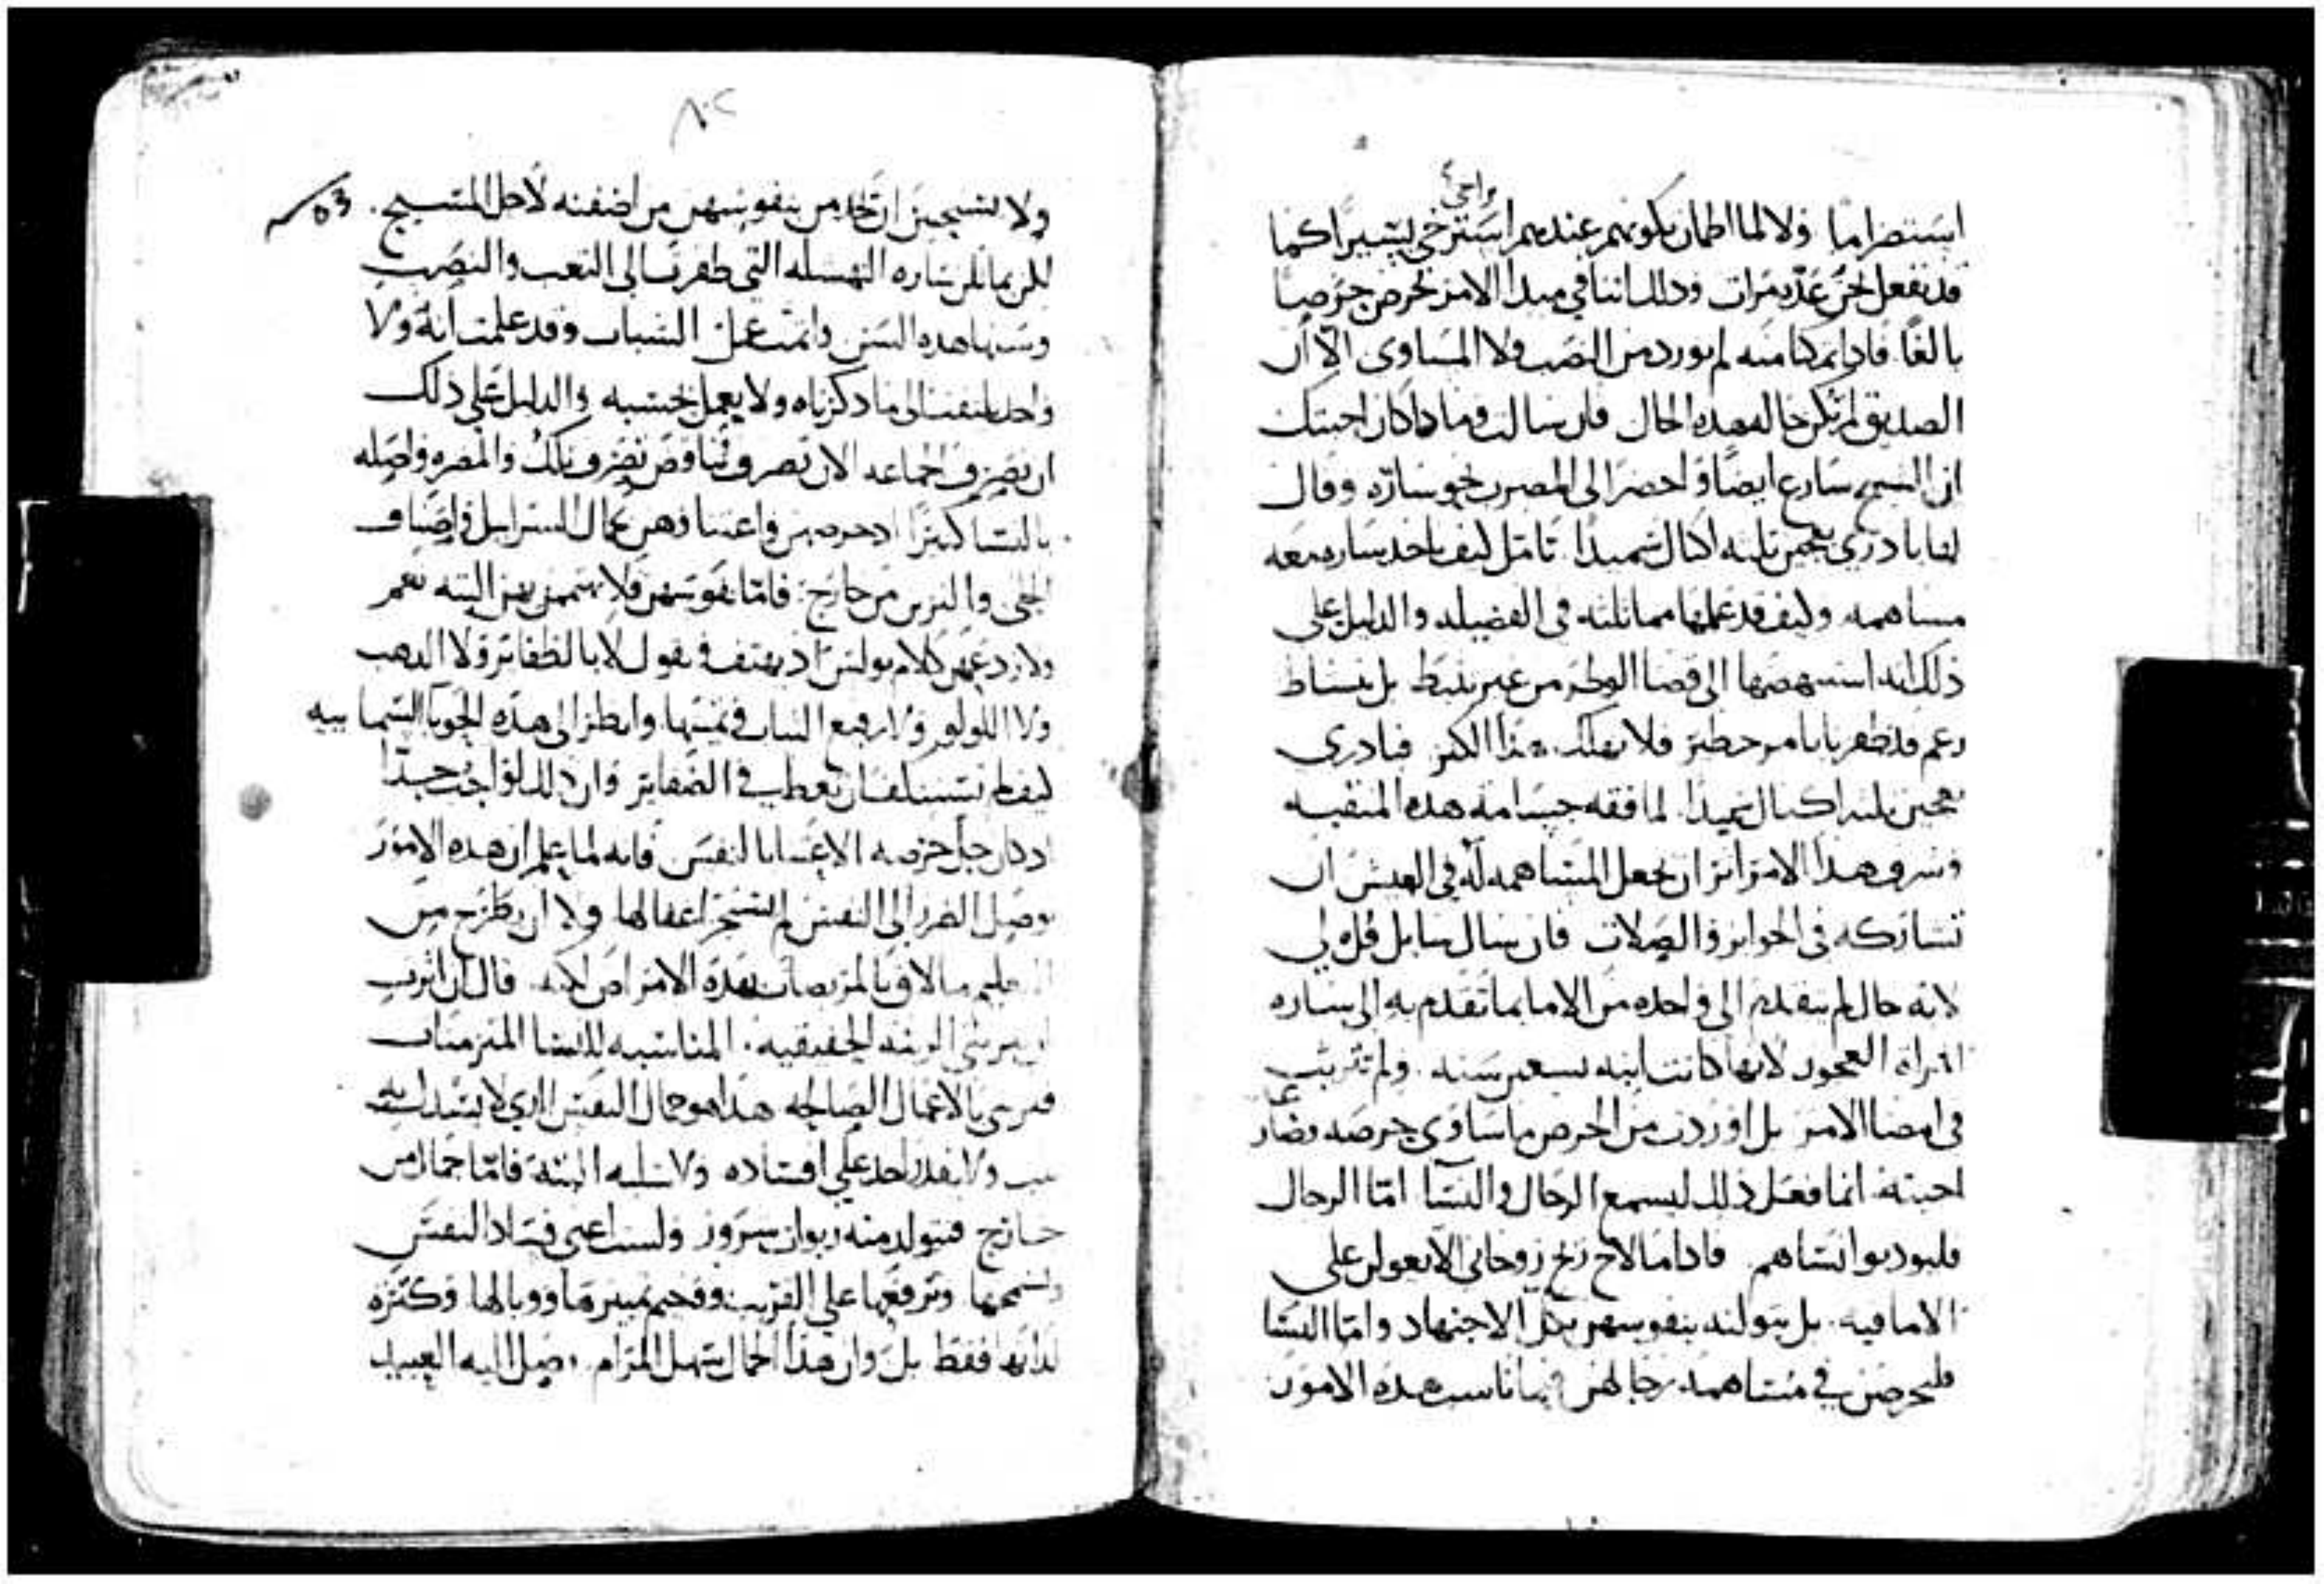 واعيى
استضراما ولا لما اطمان بكونهم عندهم استرخى يسيرا كما
قد نفعل نحن عدة مرات وذلك اننا في مبدا الامر نحرص حرصا
بالغا فاذا تمكنا منه لم نورد من النصب ولا المساوى الا ان
الصديق لم تكن حاله هذه الحال فان سالت وماذا كان اجبتك
ان الشيخ سارع ايضا واحضرا الى المصرب نحو ساره وقال
لها بادري بعجن تلته اكيال سميدا تامل كيف ياخد ساره معه
مساهمه وكيف قد علمها مماثلته في الفضيله والدليل على
ذلك انه استنهضها الى قضا الوطر من غير تثبط بل بنشاط
زعم قد ظفر بابا مر خطير فلا يفتك هذا الكنز فبادري
بعجن تلته اكيال سميدا لما فقه جسامة هذه المنقبه
وشرف هذا الامر اثر ان يجعل المساهمه له في العيش ان
تشاركه في الجوايز والصلات فان سال سايل قل لي
لاية حال لم يتقدم الى واحده من الاما بما تقدم به الى ساره
امراه العجوز لانها كانت ابنه تسعين سنه ولم تتريث
في امضا الامر بل اوردت من الحرص ما ساوى حرصه وضار ع
اجبته انما فعل ذلك ليسمع الرجال والنسا اما الرجال
فليودبوا نساهم فاذا ما لاح ربح روحاني الا يعولن على
الاما فيه بل يتولنه بنفوسهن بكل الاجتهاد واما النسا
فليحرصن في مساهمة رجالهن فيما ناسب هذه الامور
٨٠٢
53
ولا تستحين ان تخدمن بنفوسهن من اضفنه لاجل المسيح
لكن يماثلن ساره الشهمسله التي طفرت الى التعب والنصب
وسنها هذه السن واتمت عمل الشباب وقد علمت انه ولا
واحد يلتفت الى ما ذكرناه ولا يعمل بحسبه والدليل على ذلك
ان تصرف الجماعه الان تصرف يناقض تصرف تلك والمضره واصله
بالنسا كثيرا اذ حرصهن واعتناوهن بجمال السرابيل واصناف
الحلى والتزين من خارج فاما نفوسهن فلا يهتممن بهن البته نعم
ولا ردعهن كلام بولس اذ يهتف ويقول لا بالظفاير ولا الذهب
ولا اللولو ولا رفيع الثياب في ثمنها وانظر الى هذه الحوبا السمابيه
كيف لم تستنكف ان تعطب في الضفاير وان ذلك لواجب جدا
اذ كان جل حرصه الاعتنا بالنفس فانه لما علم ان هذه الامور
توصل الضرر الى النفس لم يستجز اغفالها ولا ان يطرح من
التعليم ما لاق بالمريضات بهذه الامراض لكنه قال ان اثرت
ان تريني الزينه الحقيقيه المناسبه للنسا المتزمتات
فتزيني بالاعمال الصالحه هذا هو جمال النفس الذي لا يستدل
ولا يقدر احد على افساده ولا سلبه البته فاما جمال من
خارج فيتولد منه ربوات شرور ولست اعني فساد النفس
وتشمخها وترفعها على القريب وفحيم تميزها ووبالها وكثره
لذاتها فقط بل وان هذا الجمال سهل المرام وصل اليه العبيد